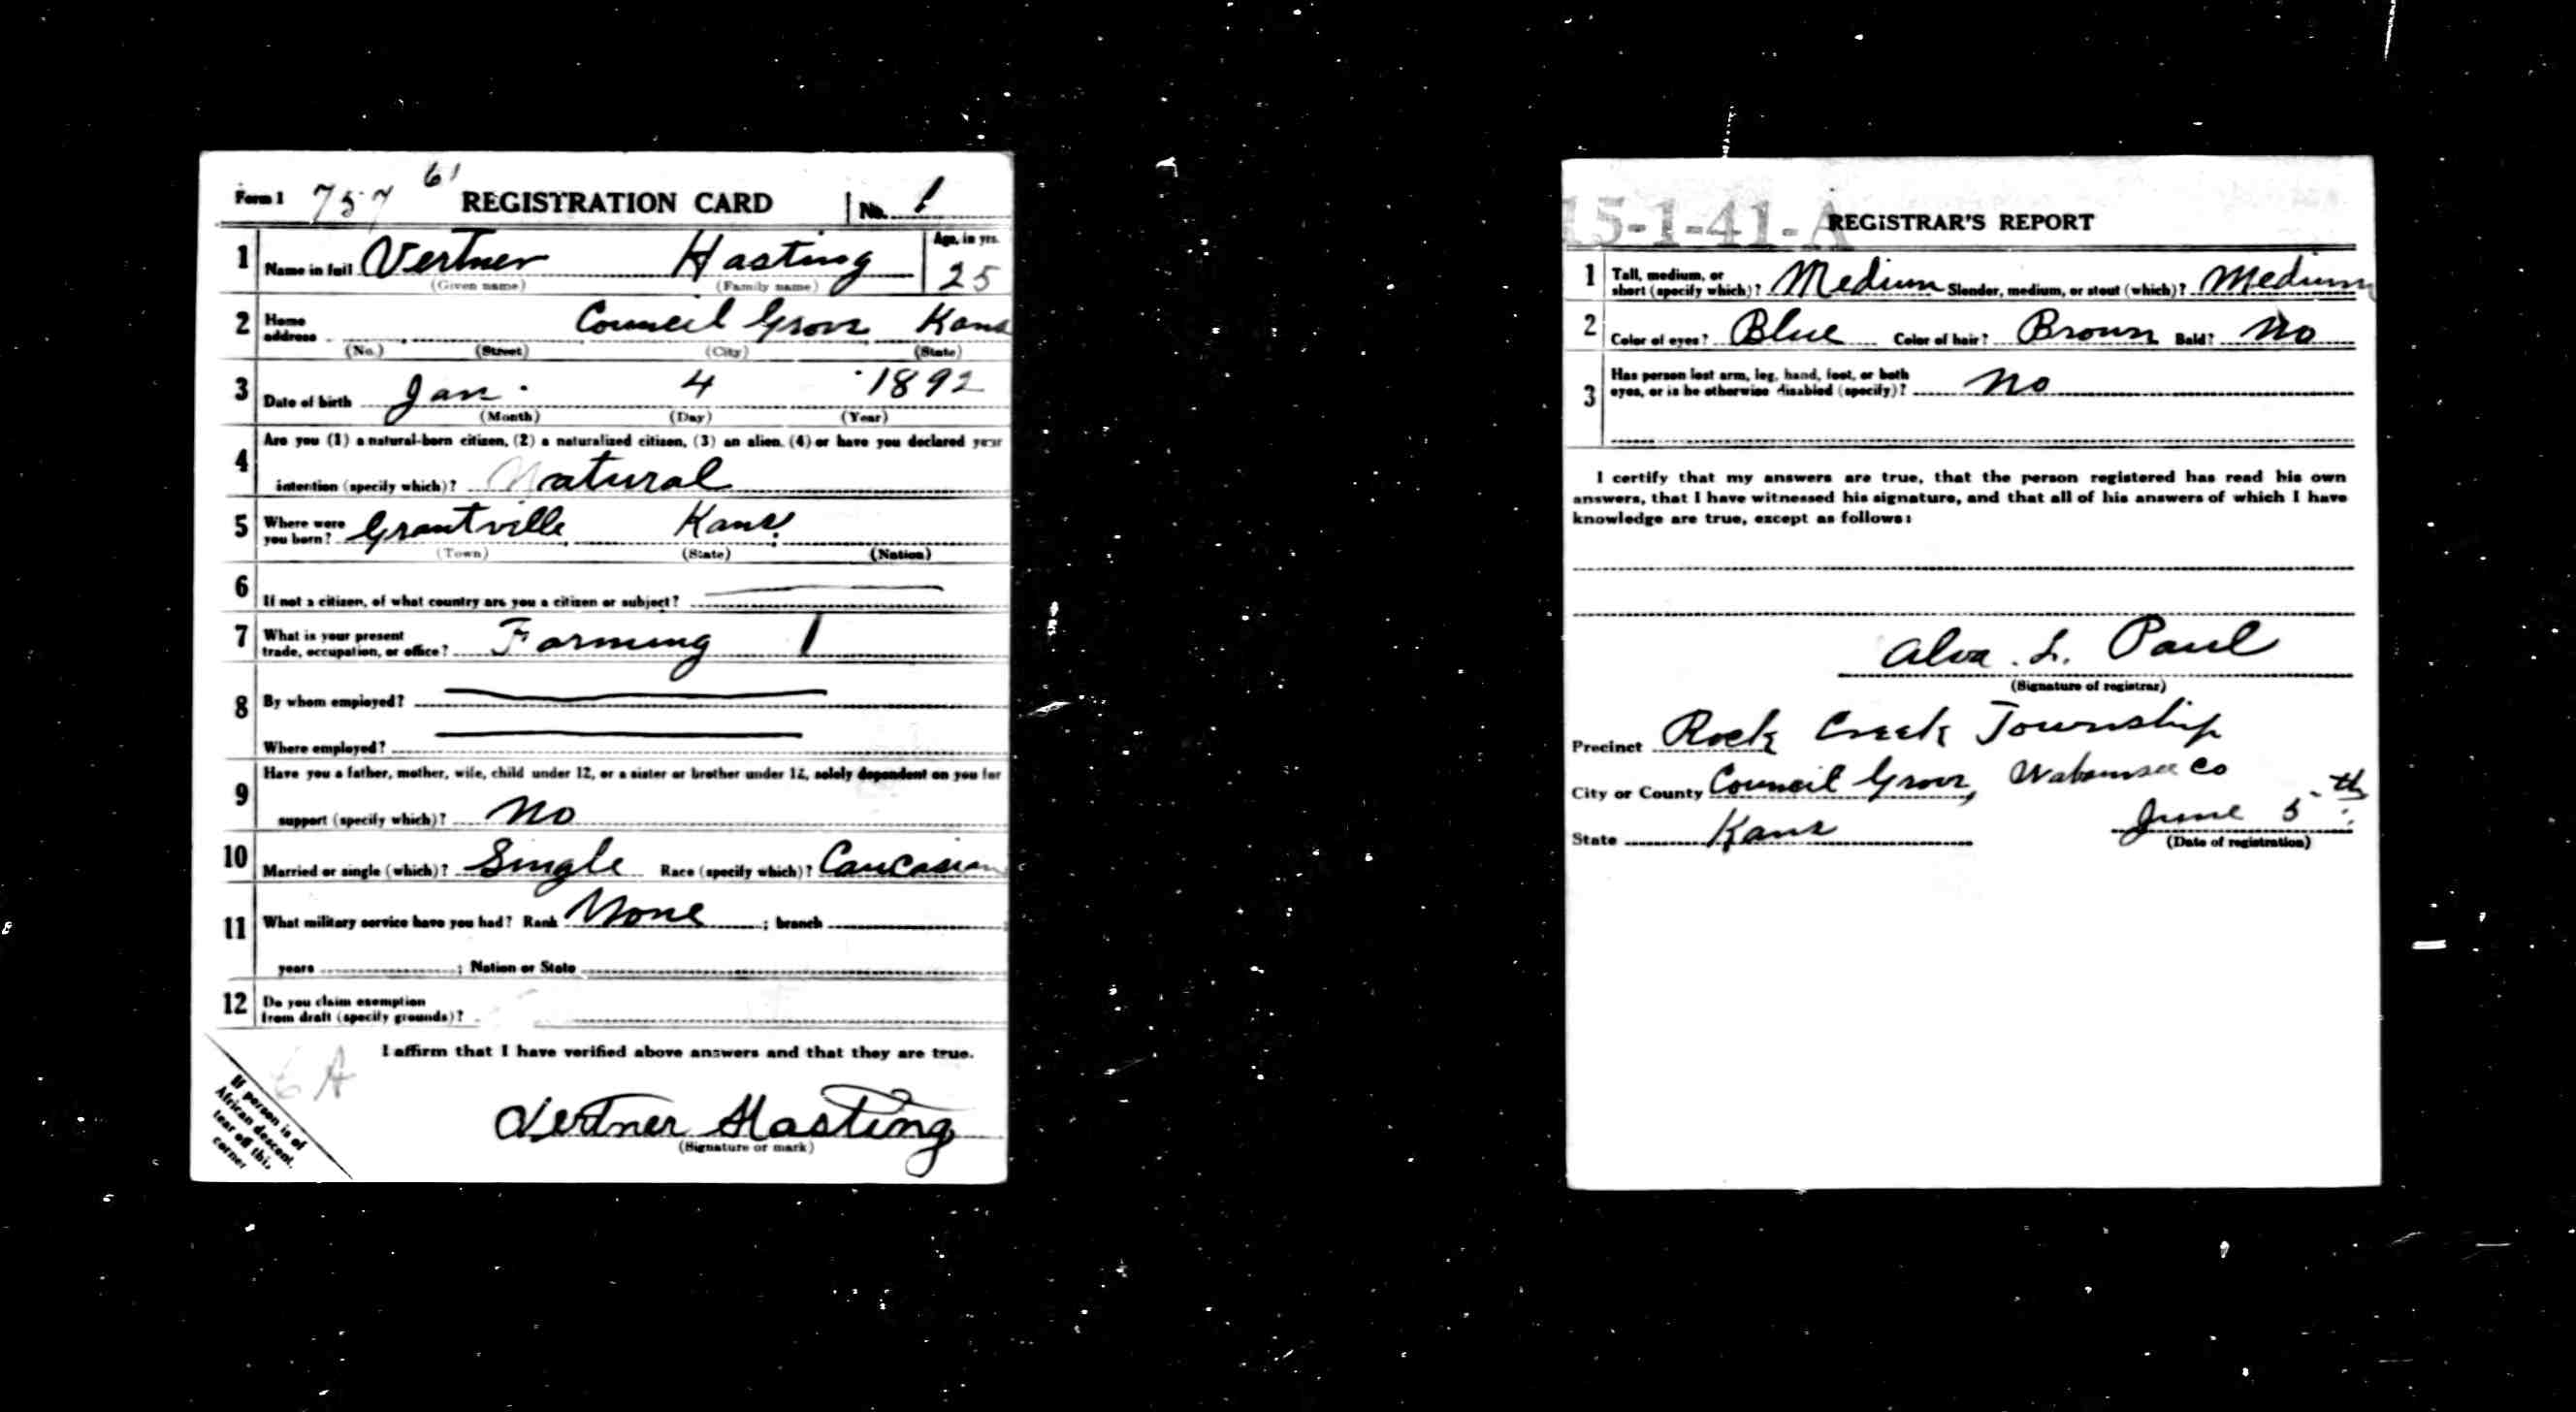 Form 1 757 61 REGISTRATION CARD No. 1
1 Name in full Vertner Hasting Age, in yrs.
(Given name) (Family name) 25
2 Home address Council Grove Kans
(No.) (Street) (City) (State)
3 Date of birth Jan. 4 1892
(Month) (Day) (Year)
4 Are you (1) a natural-born citizen, (2) a naturalized citizen, (3) an alien, (4) or have you declared your
intention (specify which)? Natural
5 Where were you born? Grantville Kans.
(Town) (State) (Nation)
6 If not a citizen, of what country are you a citizen or subject?
7 What is your present
trade, occupation, or office? Farming
8 By whom employed?
Where employed?
9 Have you a father, mother, wife, child under 12, or a sister or brother under 12, solely dependent on you for
support (specify which)? No
10 Married or single (which)? Single Race (specify which)? Caucasian
11 What military service have you had? Rank None ; branch
years ; Nation or State
12 Do you claim exemption
from draft (specify grounds)?
I affirm that I have verified above answers and that they are true.
6 A
If person is of
African descent,
tear off this
corner
Vertner Hasting
(Signature or mark)
15-1-41-A REGISTRAR'S REPORT
1 Tall, medium, or
short (specify which)? Medium Slender, medium, or stout (which)? Medium
2 Color of eyes? Blue Color of hair? Brown Bald? No
3 Has person lost arm, leg, hand, foot, or both
eyes, or is he otherwise disabled (specify)? No
I certify that my answers are true, that the person registered has read his own
answers, that I have witnessed his signature, and that all of his answers of which I have
knowledge are true, except as follows:
Alva. L. Paul
(Signature of registrar)
Precinct Rock Creek Township
City or County Council Grove, Wabaunsee Co
State Kans June 5th
(Date of registration)